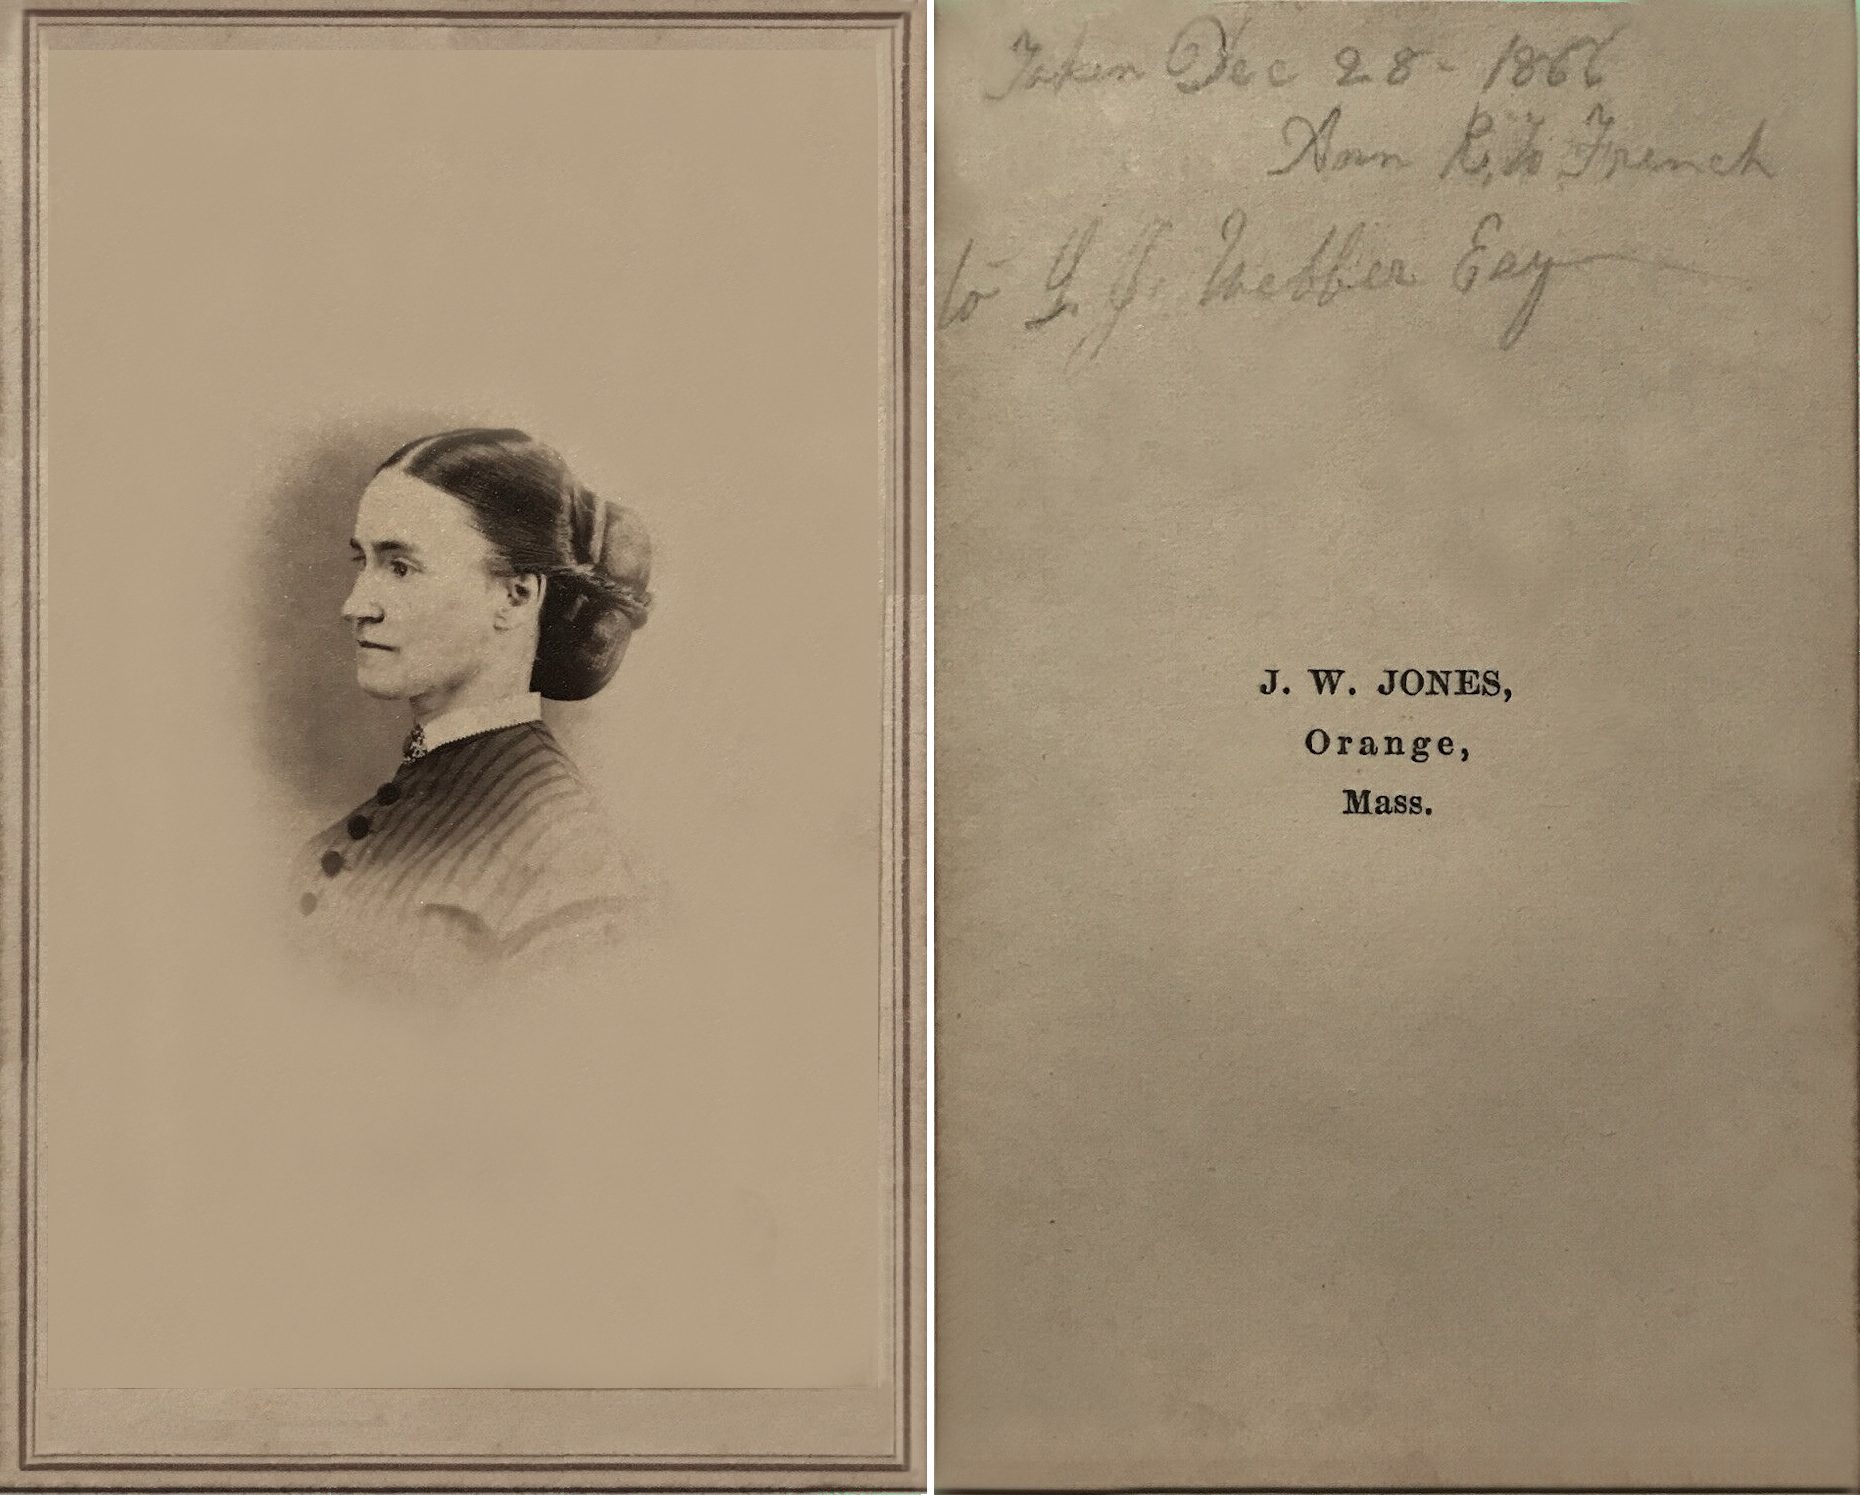 Taken Dec 28 - 1866
Ann French
to Webber Esq
J. W. JONES,
Orange,
Mass.